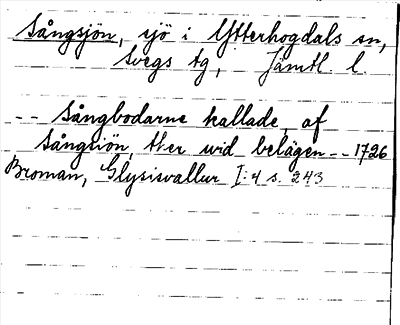 Sångsjön, sjö i Ytterhogdals sn,
Svegs tg, Jämtl. l.
-- Sångbodarne kallade af
Sångsiön, ther wid belägen -- 1726
Broman, Glysisvallur I:4 s. 243